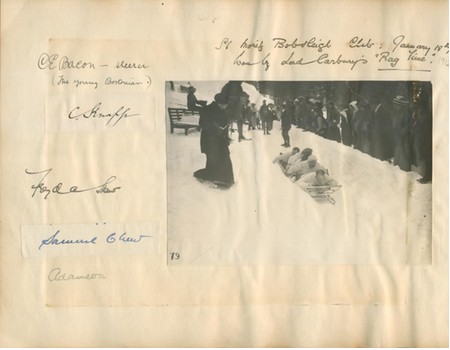 St Moritz Bobsleigh Club: January 18th
Won by Lord Carbery's "Rag Time".
C E Bacon —
(The young Bostonian)
C. Knapp
Samuel Chew
Adamson
79